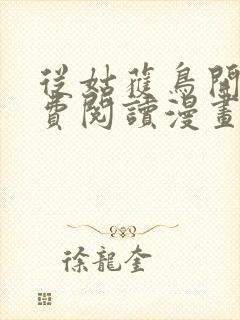 從姑蘿鳥開
費閱讀漫畫
徐龍奎